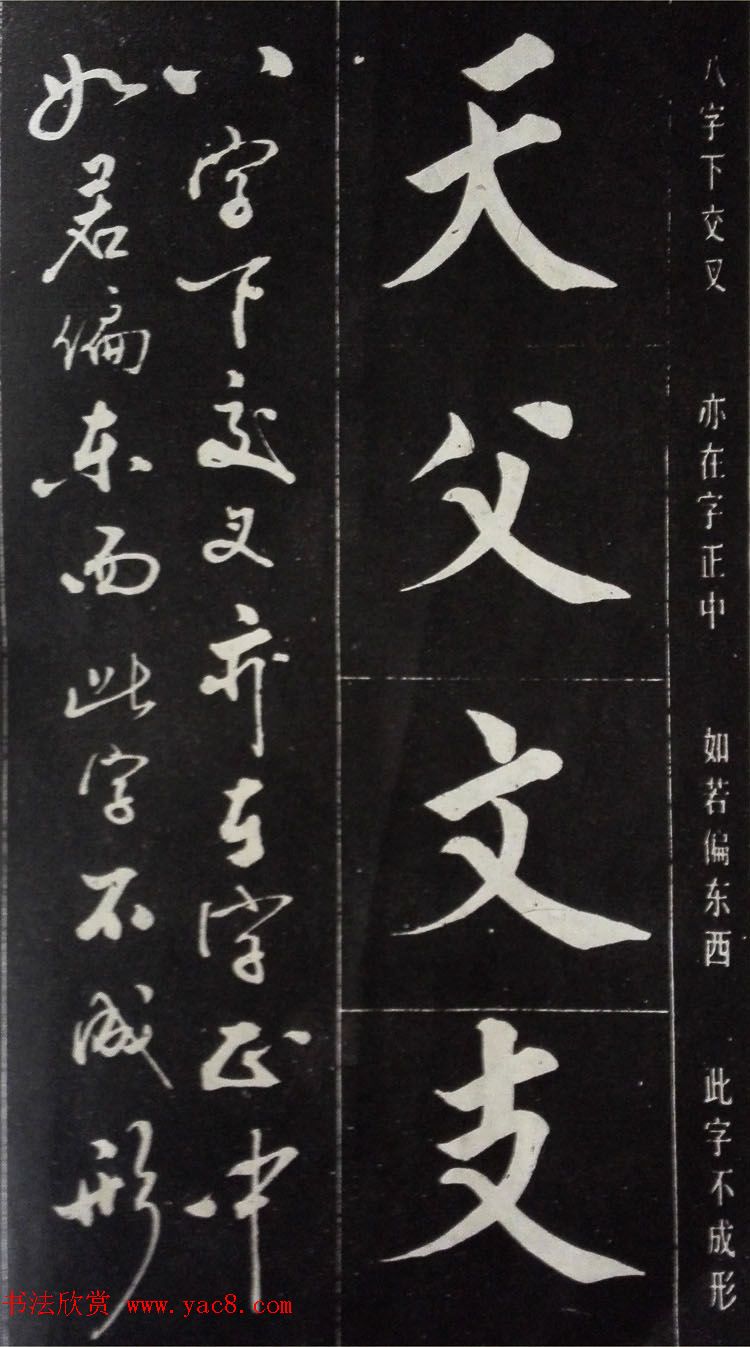 八字下交叉 亦在字正中 如若偏东西 此字不成形
天
父
文
支
八字下交叉亦在字正中
如若偏东西此字不成形
书法欣赏 www.yac8.com